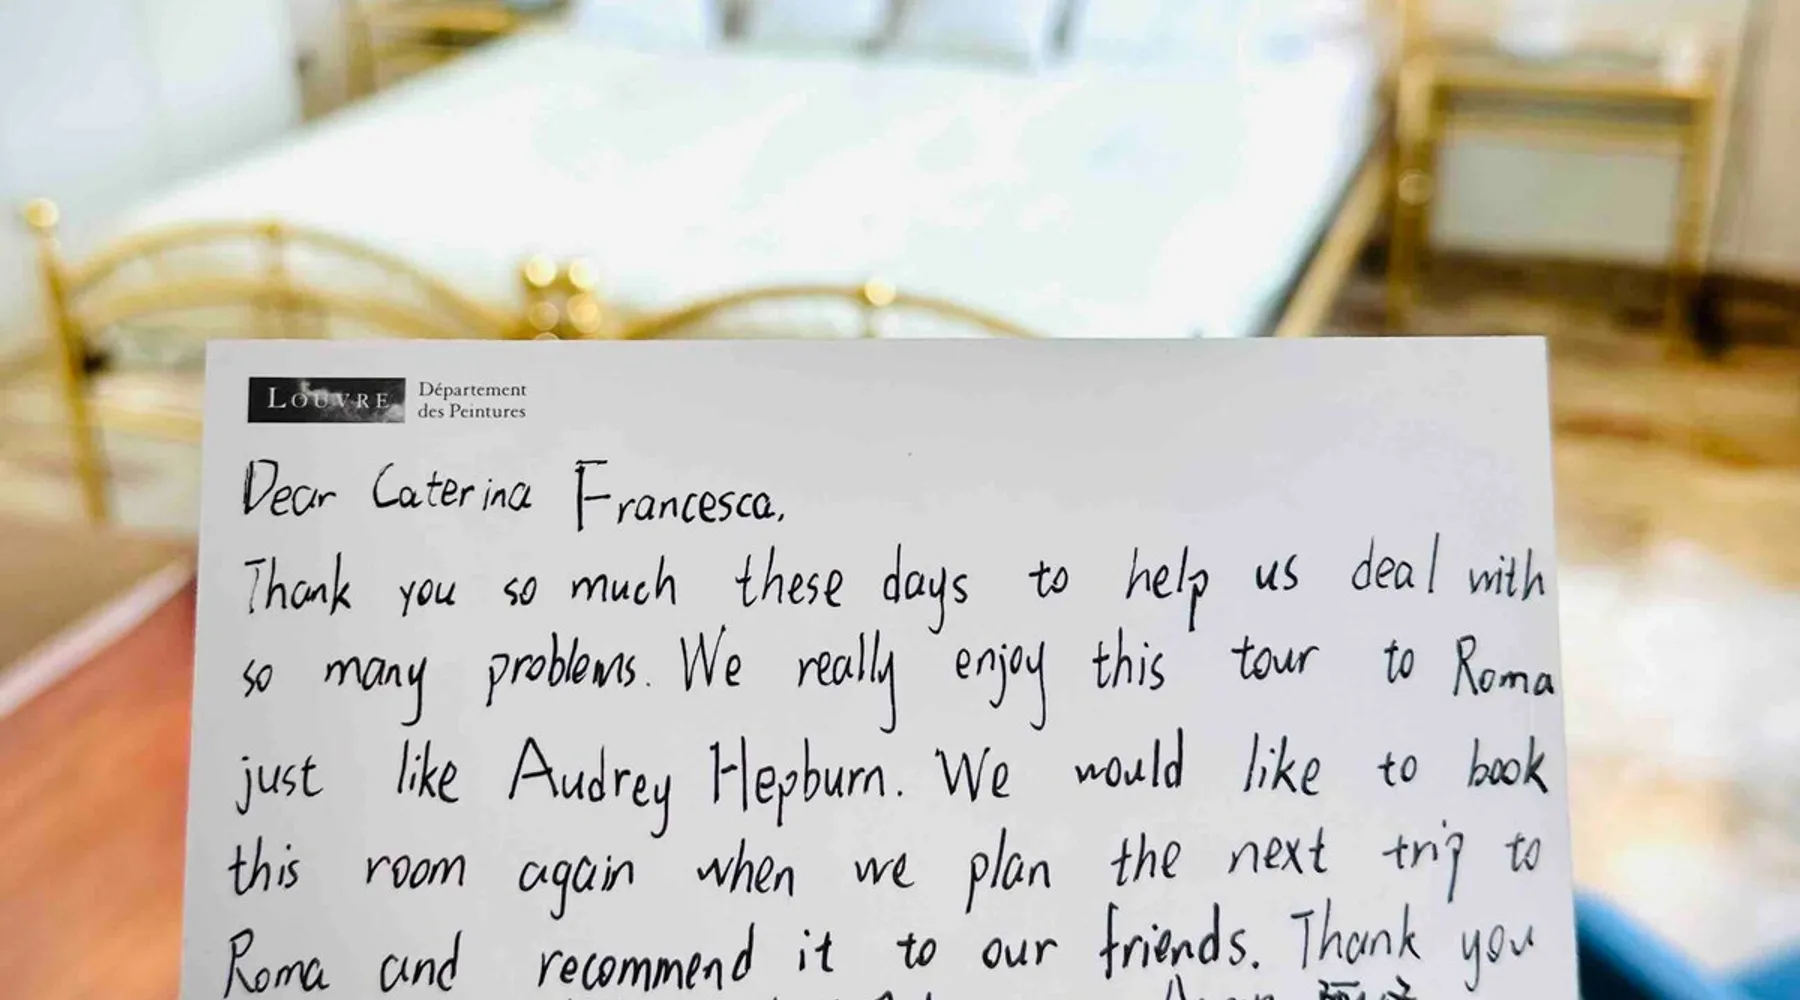 LOUVRE
Département
des Peintures
Dear Caterina Francesca,
Thank you so much these days to help us deal with
so many problems. We really enjoy this tour to Roma
just like Audrey Hepburn. We would like to book
this room again when we plan the next trip to
Roma and recommend it to our friends. Thank you